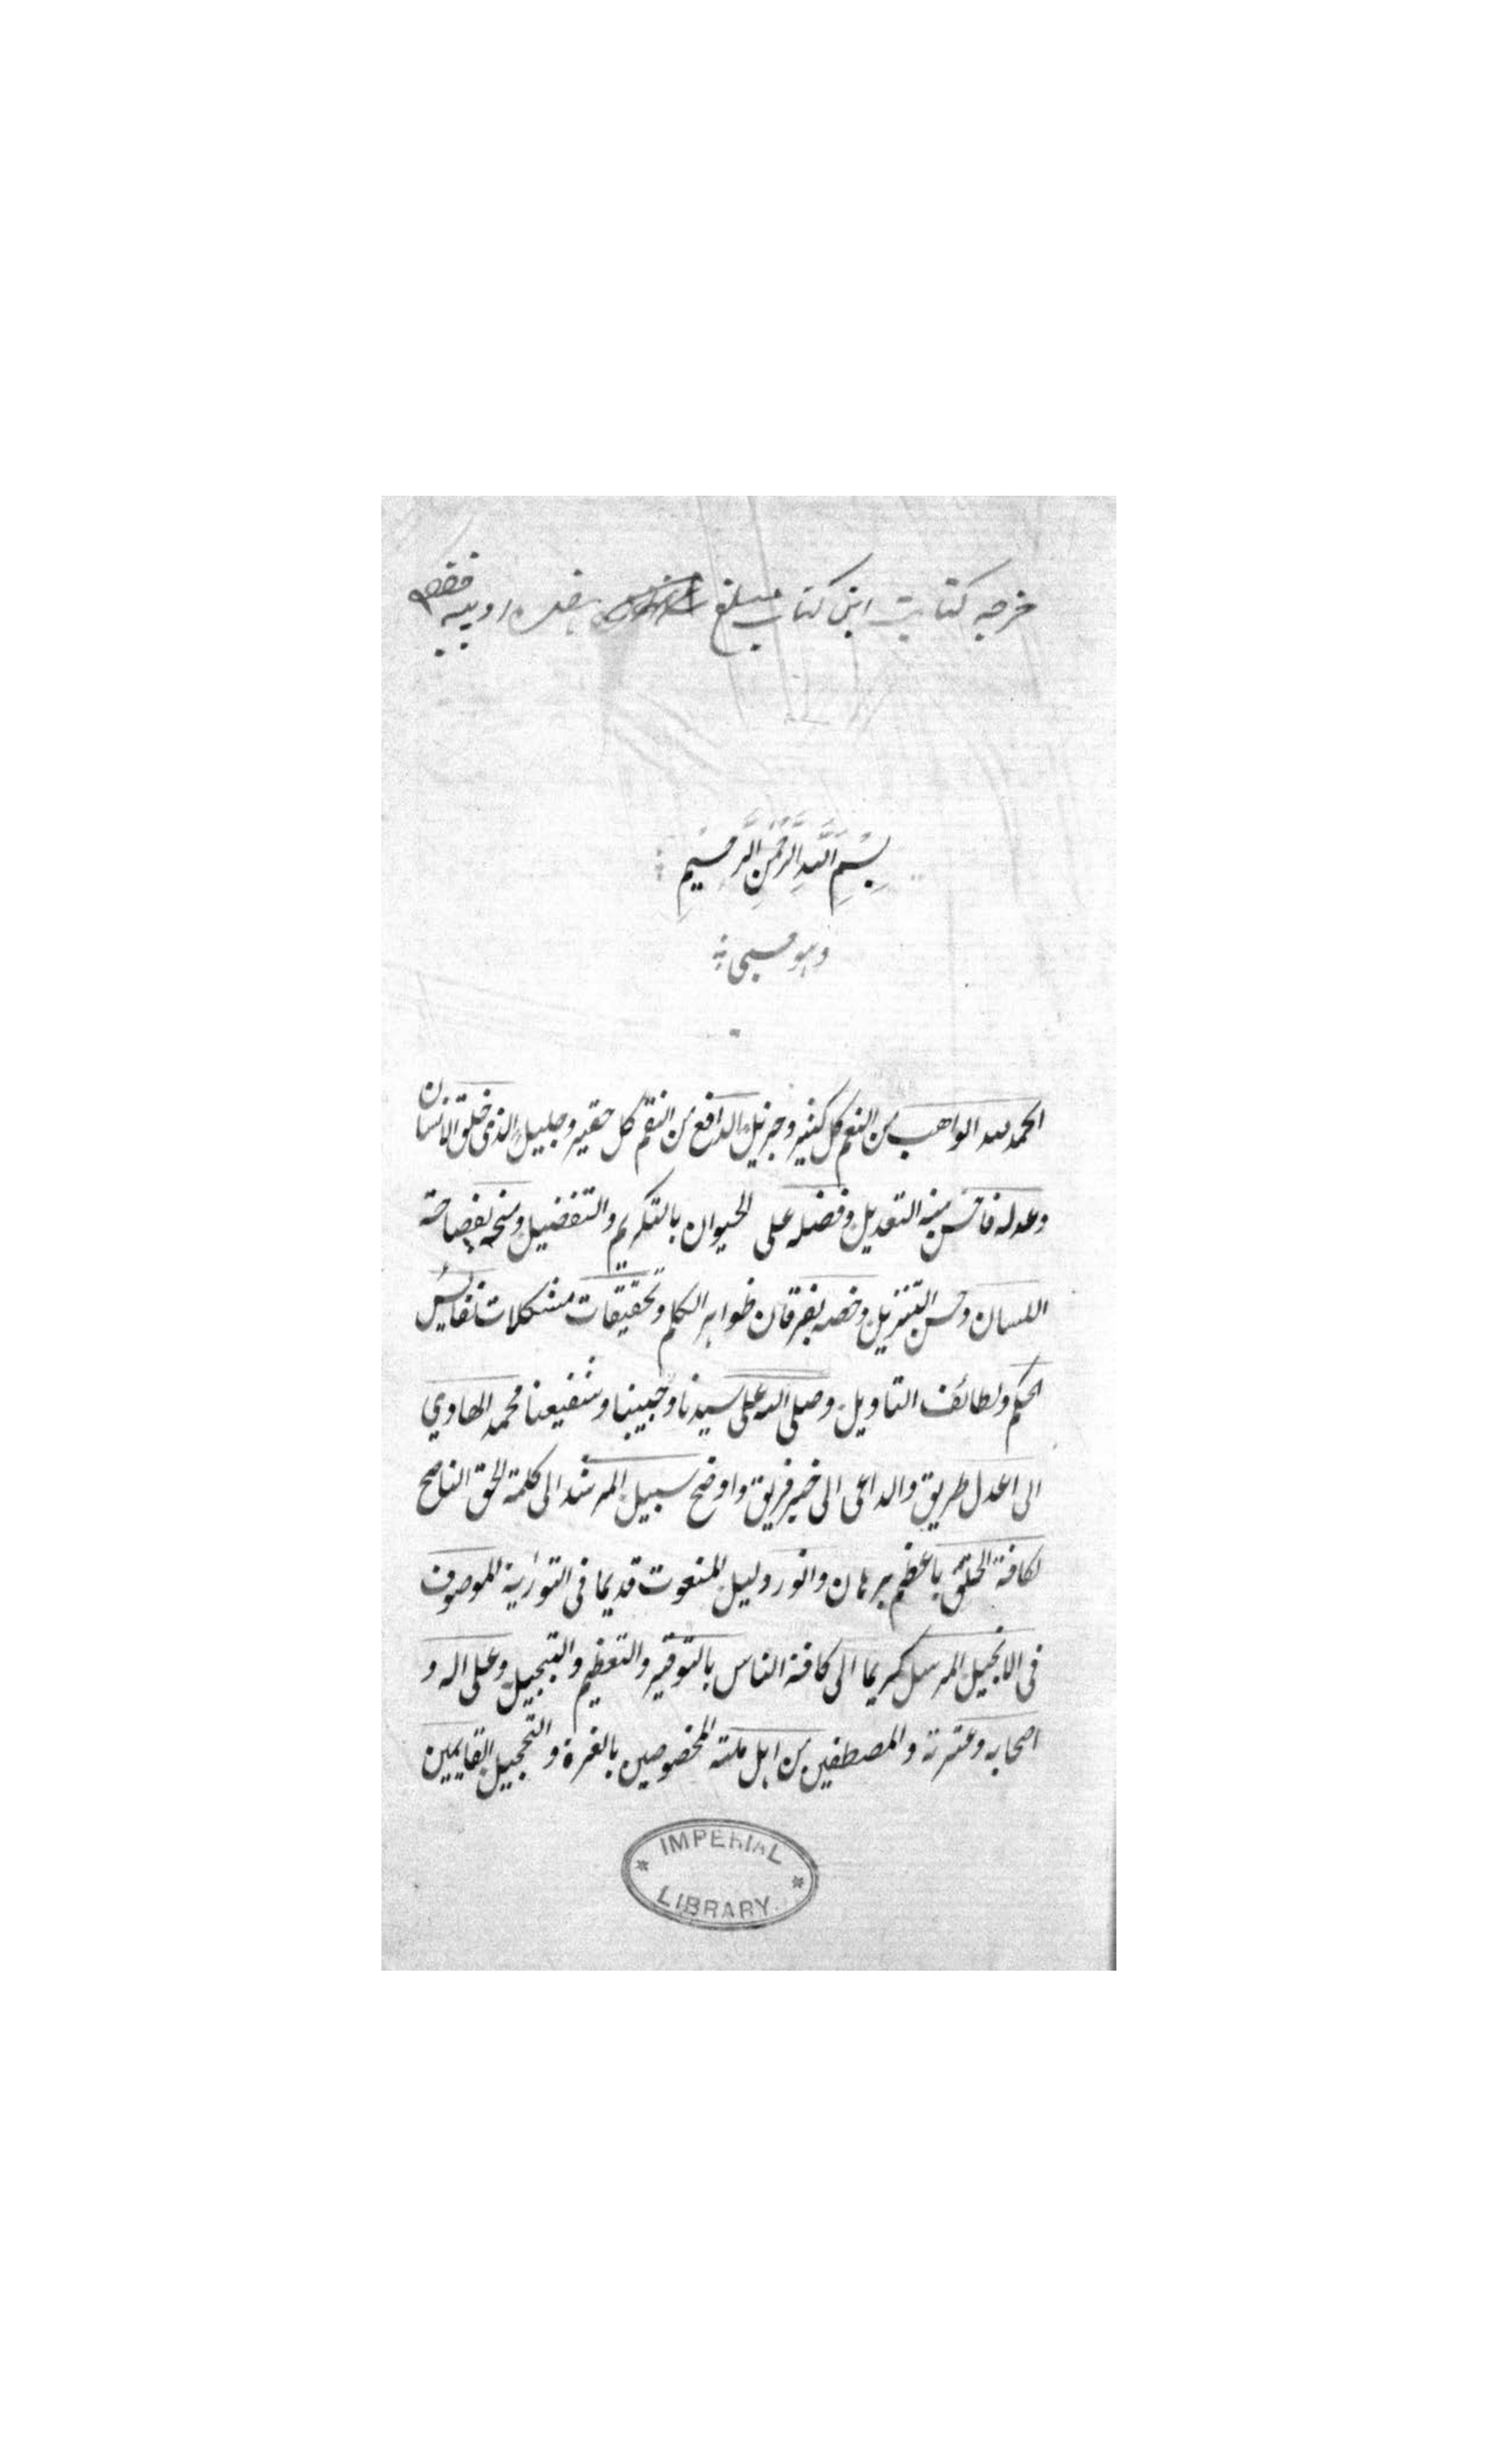 خرجه كتابت اين كتاب مبلغ روپيه فقط
بِسْمِ اللَّهِ الرَّحْمَنِ الرَّحِيمِ
وهو حسبي
الحمد لله الواهب من النعم كل كثير وجزيل الدافع من النقم كل حقير وجليل الذي خلق الانسان
وعدله فاحسن منه التعديل وفضله على الحيوان بالتكريم والتفضيل ومنحه بفصاحة
اللسان وحسن التنزيل وخصه بفرقان ظواهر الكلم وتحقيقات مشكلات نفايس
الحكم ولطائف التاويل وصلى الله على سيدنا وحبيبنا وشفيعنا محمد الهادي
الى اعدل طريق والداعى الى خير فريق واوضح سبيل المرشد الى كلمة الحق الناصح
لكافة الخلق باعظم برهان وانور دليل المنعوت قديما فى التورٰية الموصوف
فى الانجيل المرسل كريما الى كافة الناس بالتوقير والتعظيم والتبجيل وعلى اله و
اصحابه وعترته والمصطفين من اهل ملته المخصوصين بالغرة والتحجيل القايمين
IMPERIAL
LIBRARY.